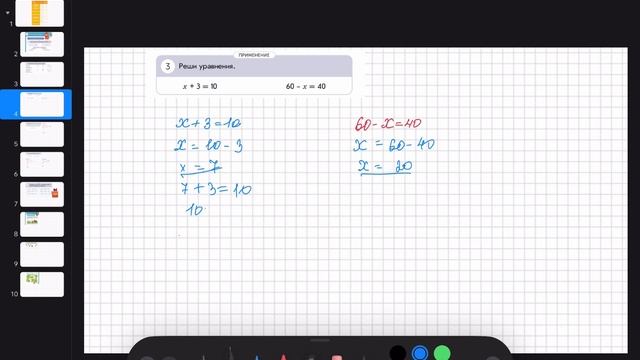 ПРИМЕНЕНИЕ
3 Реши уравнения.
x + 3 = 10 60 – x = 40
x + 3 = 10
x = 10 - 3
x = 7
7 + 3 = 10
10
60 - x = 40
x = 60 - 40
x = 20
1
2
3
4
5
6
7
8
9
10